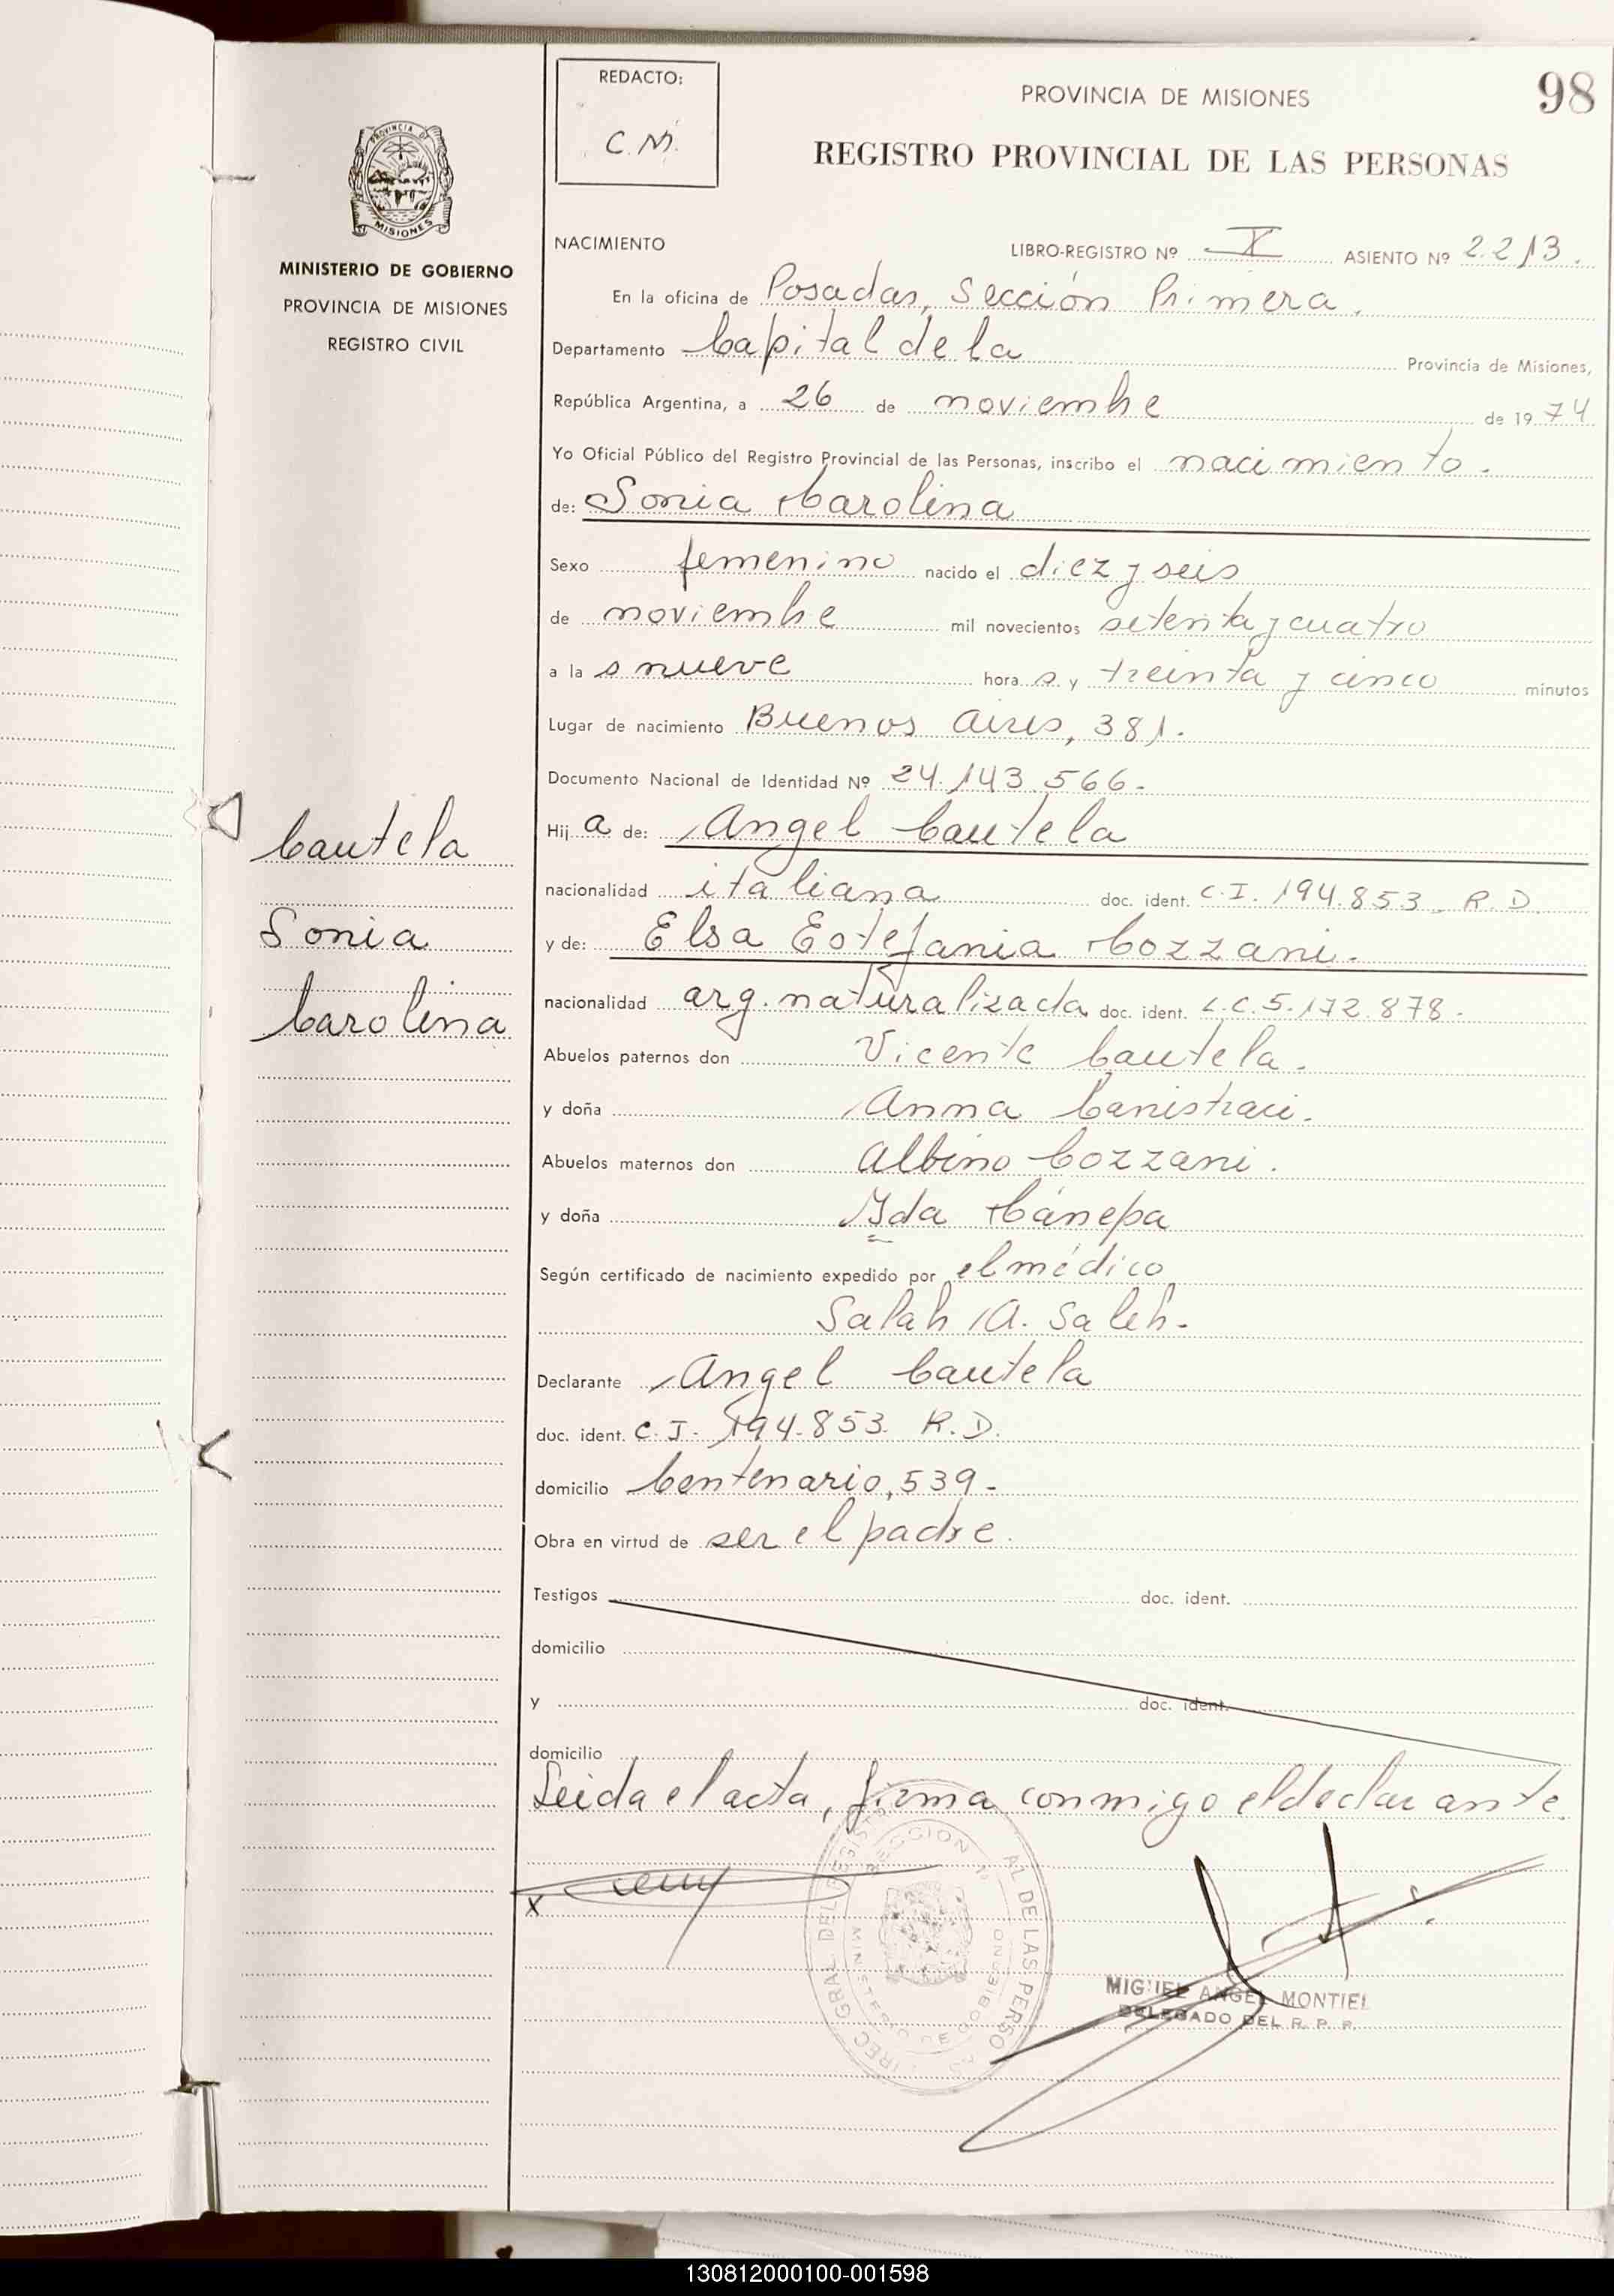 REDACTO:
C.M.
PROVINCIA DE MISIONES
98
REGISTRO PROVINCIAL DE LAS PERSONAS
MISIONES
MINISTERIO DE GOBIERNO
PROVINCIA DE MISIONES
REGISTRO CIVIL
NACIMIENTO LIBRO-REGISTRO Nº X ASIENTO Nº 2213.
En la oficina de Posadas, Sección Primera.
Departamento Capital de la Provincia de Misiones,
República Argentina, a 26 de noviembre de 1974
Yo Oficial Público del Registro Provincial de las Personas, inscribo el nacimiento.
de: Sonia Carolina
Sexo femenino nacido el diez y seis
de noviembre mil novecientos setenta y cuatro
a la s nueve hora s y treinta y cinco minutos
Lugar de nacimiento Buenos Aires, 381.
Documento Nacional de Identidad Nº 24.143.566.
Hij a de: Angel Cautela
Cautela
nacionalidad italiana doc. ident. C.I. 194.853. R.D.
Sonia
y de: Elsa Estefania Cozzani.
Carolina
nacionalidad arg. naturalizada doc. ident. L.C. 5.172.878.
Abuelos paternos don Vicente Cautela.
y doña Anna Canistraci.
Abuelos maternos don Albino Cozzani.
y doña Yda Cánepa
Según certificado de nacimiento expedido por el médico
Salah A. Saleh.
Declarante Angel Cautela
doc. ident. C.I. 194.853. R.D.
domicilio Centenario, 539.
Obra en virtud de ser el padre.
Testigos doc. ident.
domicilio
y doc. ident.
domicilio
Leida el acta, firma conmigo el declarante.
x
MIGUEL ANGEL MONTIEL
DELEGADO DEL R. P. P.
130812000100-001598